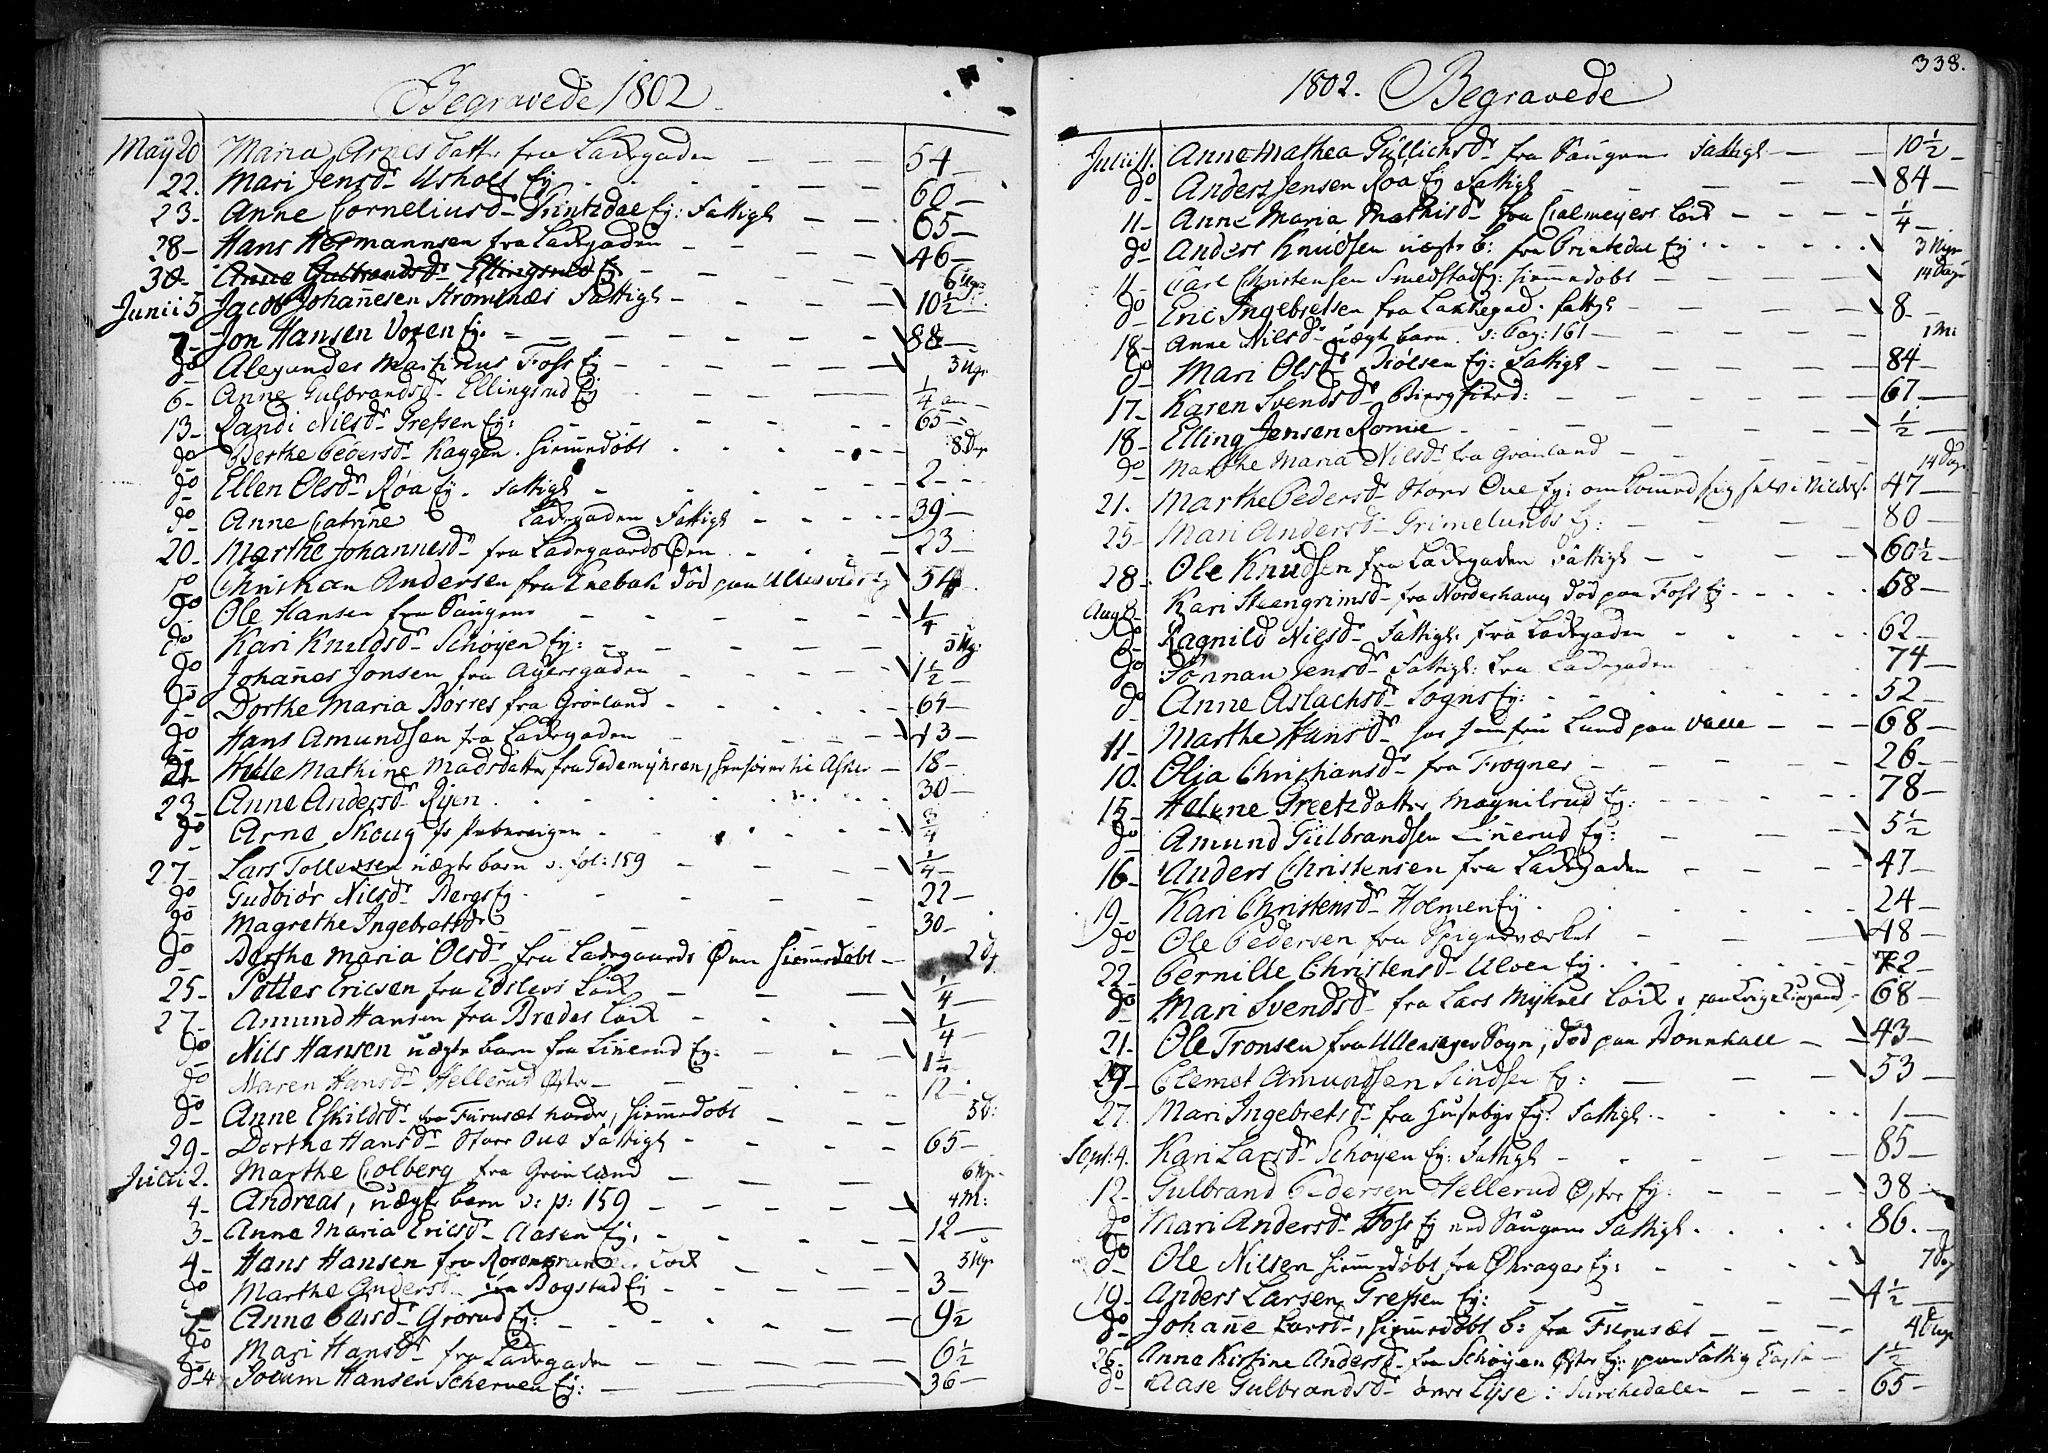 Begravede 1802
May 20 Maria Arnesdatter fra Ladegaden 54
22. Mari Jensd. Usholt Ej 60
23 Anne Corneliusd. Ej: Fattigl 65
28 Hans Hermannsen fra Ladegaden 46
30 Anne Gulbrandsd. Ellingsrud Ej 6 Ug.
Junii 5 Jacob Johannesen Strømnæs Fattigl 10 1/2
7 Jon Hansen Voxen Ej. 88
do Alexander Martinus Foss Ej 3 Ug.
6 Anne Gulbrandsd. Ellingsrud Ej 1/4
13 Randi Nilsd. Grefsen Ej: 65
do Berthe Pedersd. Kaggen. hiemmedøbt 8 D.
do Ellen Olsd. Røa Ej. Fattigl 2
do Anne Catrine Ladegaden Fattigl 39
20 Marthe Johannesd. fra Ladegaards Øen 23
do Christian Andersen fra Enebak død paa Ullevold Ej 54
do Ole Hansen fra Saugene 1/4
do Kari Knudsd. Schøyen Ej: 5 Ug:
do Johannes Jonsen fra Agersgaden 1 1/2
do Dorthe Maria Børres fra Grønland 64
do Hans Amundsen fra Ladegaden 13
21 Mathine Madsdatter fra Gademyhren, henføres til Asker 18
23 Anne Andersd. Ryen 30
do Arne Skoug 3/4
27 Lars Tollevsen uægte barn v. fol: 159 1/4
do Gudbiør Nilsd. Bergs Ej 22
do Magrethe Ingebretsdr 30
do Dorthe Maria Olsd. fra Ladegaards Øen hiemmedøbt 2 D.
25 Petter Ericsen fra Løck 1/4
27 Amund Hansen fra Brødes Løck 1/4
do Nils Hansen uægte barn fra Linerud Ej. 1 1/2
do Maren Hansd. Hellerud østre 12
do Anne Eskildsd. fra Furuset hiemmedøbt 3 D:
29 Dorthe Hansd. Store Ove Fattigl 65
Julii 2. Marthe Colberg fra Grønland 6 Ug.
4 Andreas, uægte barn v: p: 159 4 M:
3 Anne Maria Ericsd. Aasen Ej. 12
4 Hans Hansen fra Løck 3 Ug.
do Marthe Andersd. fra Bogstad Ej 3
5 Anne Olsd. Grorud Ej: 9 1/2
do Mari Hansd. fra Ladegaden 6 1/2
do 4 Joeum Hansen Scherven Ej: 36
338.
1802. Begravede
Julii 11. Anne Mathea Gullichsd. fra Saugene Fattigl 10 1/2
do Anders Jensen Røa Ej Fattigl 84
11 Anne Maria Mathisd. fra Calmeyers Løck 1/4
do Anders Knudsen uægte b: fra Ej 3 Ugr
11 Carl Christensen Smedstad Ej: hiemmedøbt 14 Dage
do Eric Ingebretsen fra Lakkegad. fattigl 8
18 Anne Nilsd. uægt barn. v: Pag: 161 1 M:
do Mari Olsd. Tiølsen Ej: Fattigl 84
17 Karen Svendsd. 67
18 Elling Jensen 1/2
do Marthe Maria Nilsd. fra Grønland 14 Dage
21. Marthe Pedersd. Store Ove Ej: omkommed sig selv i 47
25 Mari Andersd. Grimelunds Ej: 80
28 Ole Knudsen fra Ladegaden Fattigl 60 1/2
Aug 8 Kari Steengrimsd. fra Norderhaug død paa Foss Ej 58
do Ragnild Nilsd. Fattigl: fra Ladegaden 62
do Tønnau Jensd. Fattigl: fra Ladegaden 74
do Anne Aslachsd. Sogns Ej: 52
11 Marthe Hansd. hos Jomfru Lund paa Valle 68
10. Olia Christiansd. fra Frogner 26
15 Helene Greetzdatter Magnilrud Ej: 78
do Amund Gulbrandsen Linerud Ej: 5 1/2
16 Anders Christensen fra Ladegaden 47
19 Kari Christensd. Holmen Ej 24
do Ole Pedersen fra Spigerværket 48
22 Pernille Christensd. Ulven Ej. 72
do Mari Svendsd. fra Lars Myhres Løck 68
21. Ole Tronsen fra Ullensager Sogn, død paa Bonnhall 43
27 Clemet Amundsen Sindsen Ej: 53
27. Mari Ingebretsd. fra Husebye Ej: Fattigl. 1
Sept: 4. Kari Larsd. Schøyen Ej: Fattigl 85
12 Gulbrand Pedersen Hellerud østre Ej: 38
do Mari Andersd. Foss Ej ved Saugene Fattigl. 86
do Ole Nilsen hiemmedøbt fra Økrager Ej: 7 Dag
19 Anders Larsen Grefsen Ej: 4 1/2
do Johanne Larsd., hiemmedøbt b: fra Furuset 4 Dage
26 Anne Kirstine Andersd. fra Schøyen Østre Ej: paa Fattig Casse 1 1/2
do Aase Gulbrandsd. øvre Lyse: Sørchedalen 65